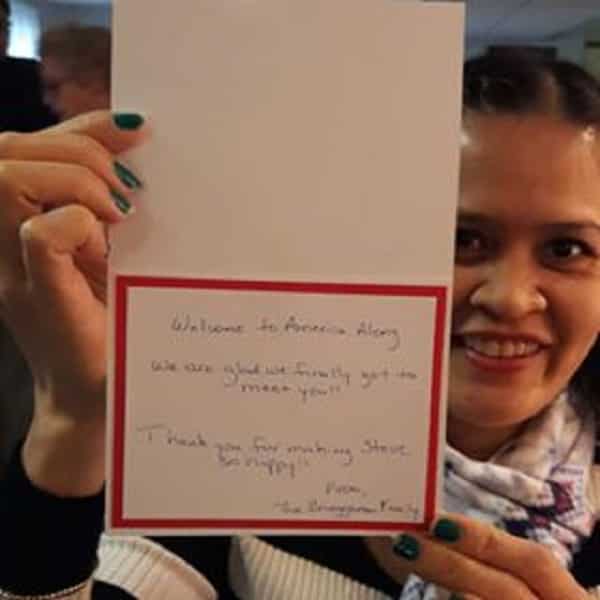 Welcome to America Along
We are glad we finally got to
meet you!!
Thank you for making Steve
so happy!!
From,
The Family